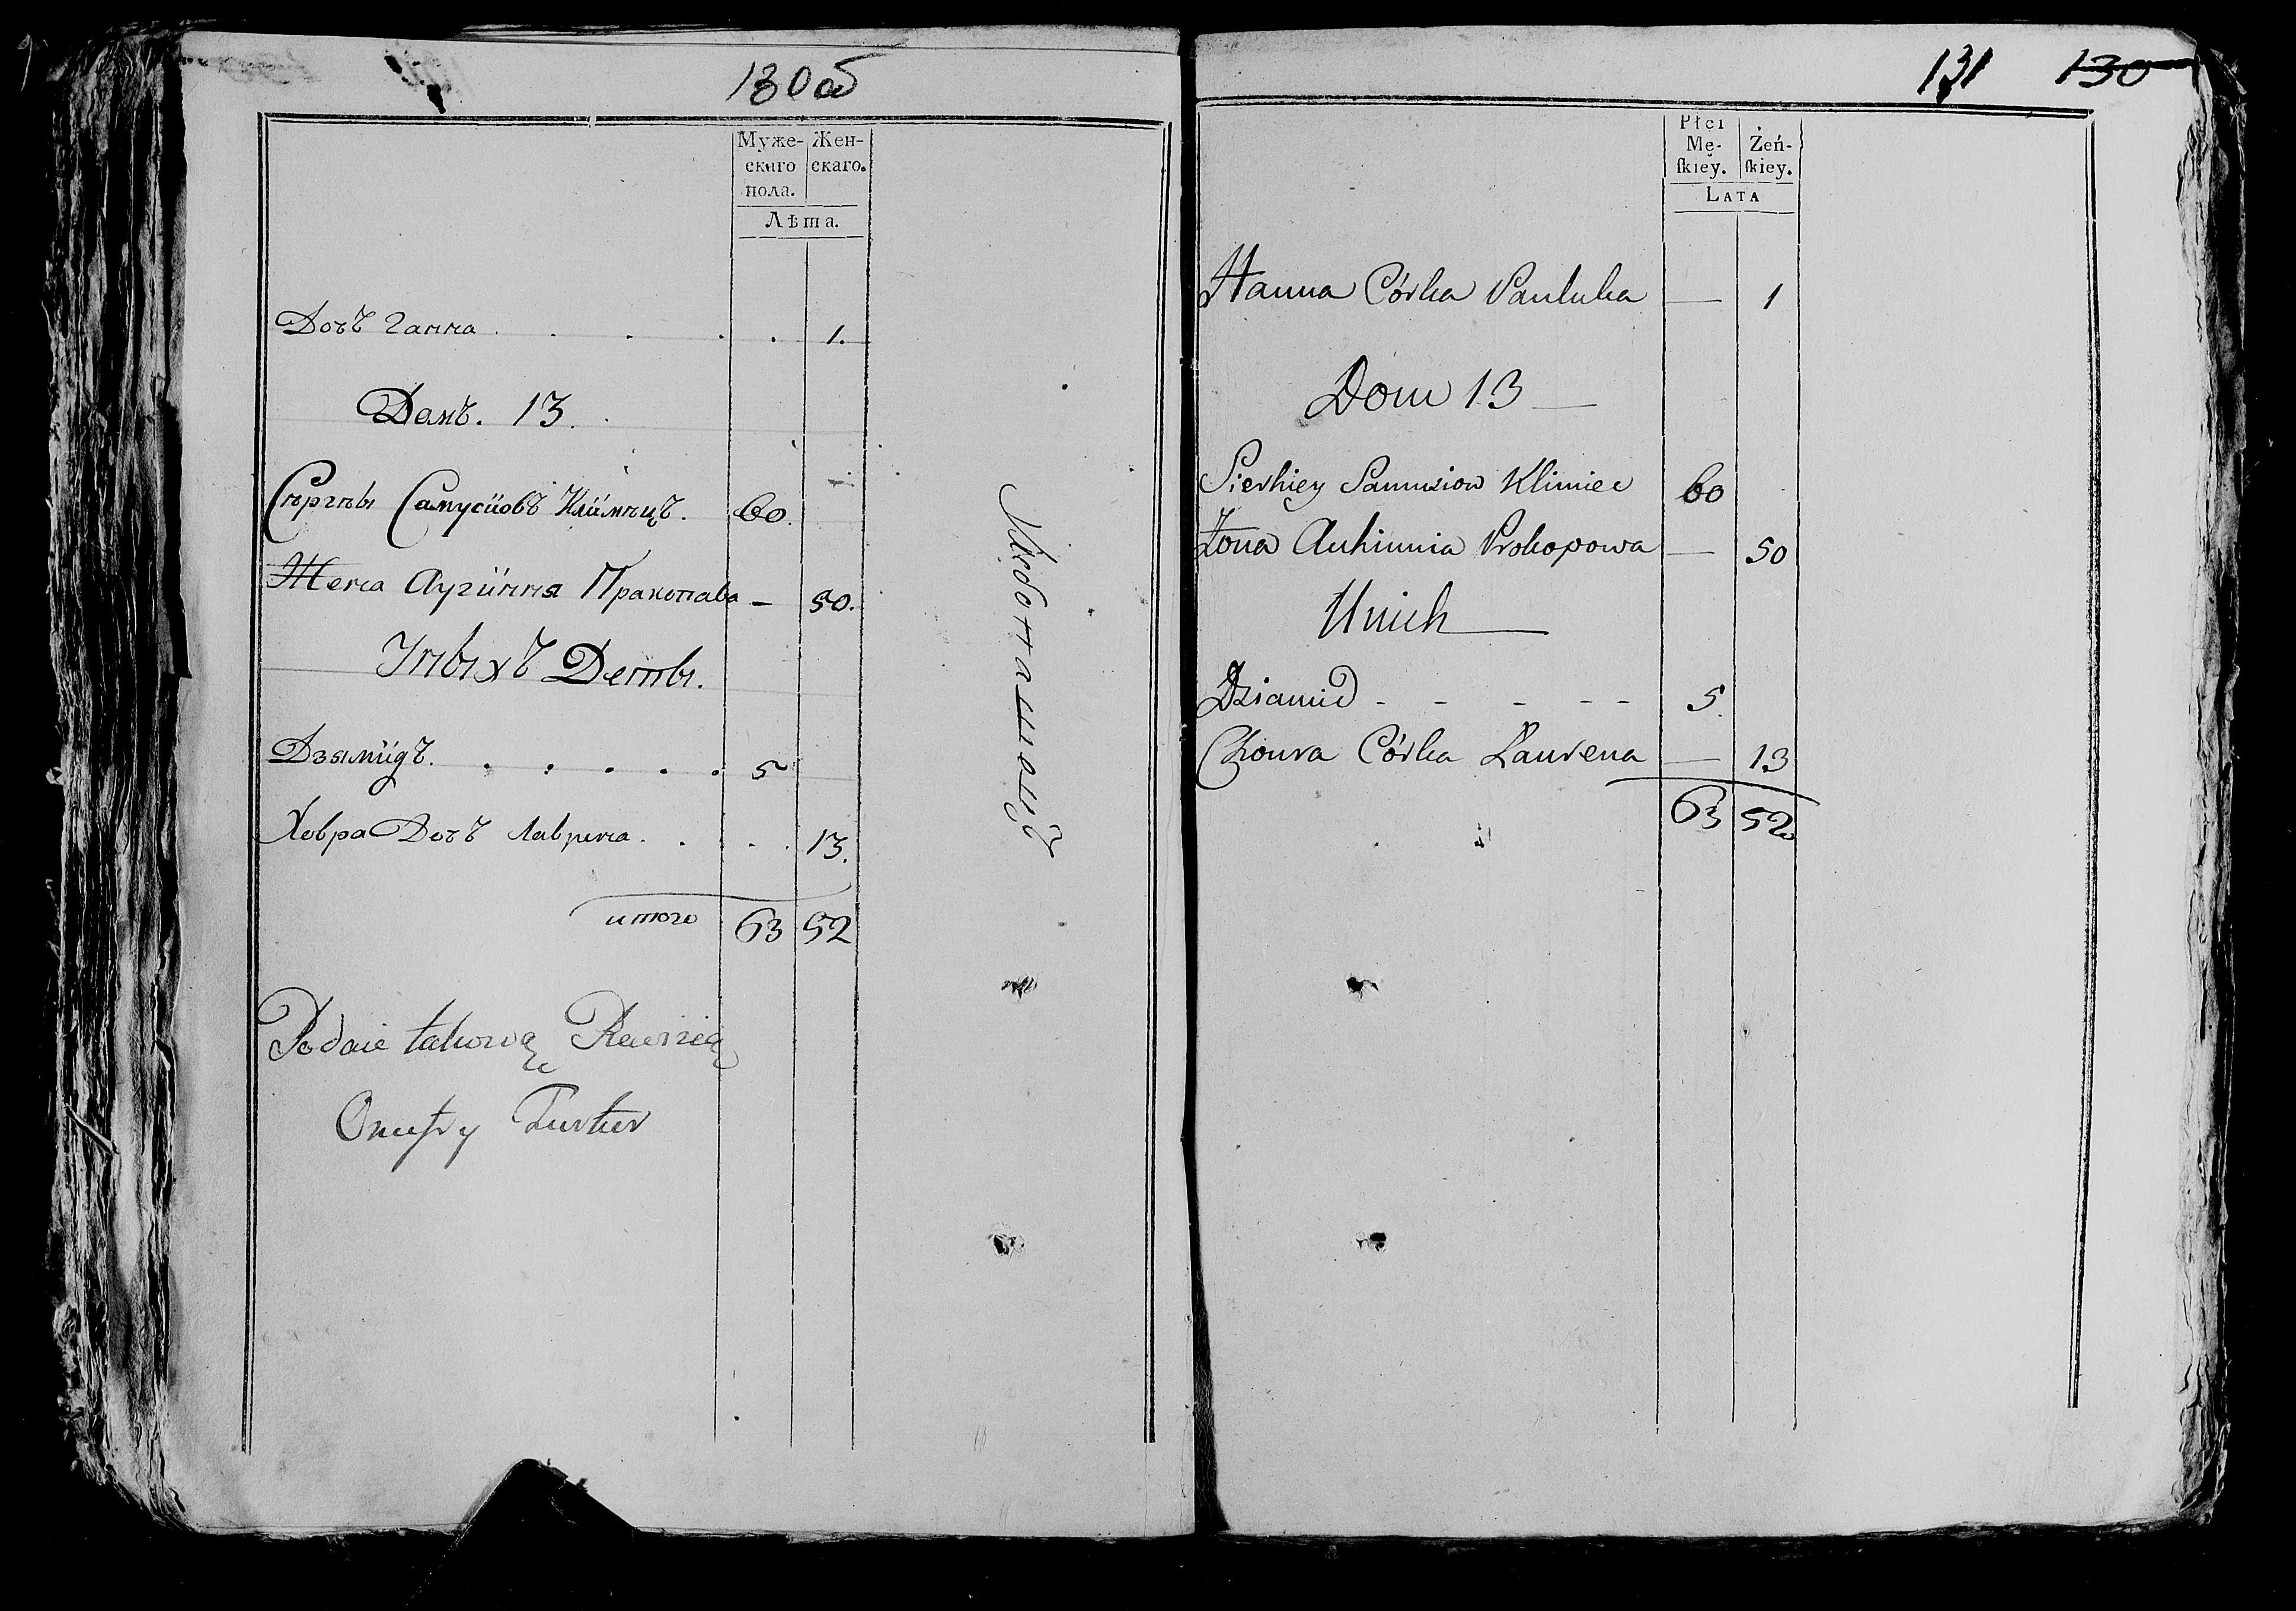 130об
Муже- Жен-
скаго скаго.
пола.
Лѣта.
Дочъ Ганна . . . . . 1.
Домъ. 13.
Сѣргѣы Самусiиовъ Клiимѣцъ. 60.
Жена Аугiиння Пракопава — 50.
Унихъ Деты.
Дзямiидъ. . . . . . 5
Ховра Дочъ Лаврена. . . . . 13.
итого 63 52
Podaie takową Rewizią
Onufry Turkur
131 130
Płci
Mę- Żeń-
ſkiey. ſkiey.
LATA
Hanna Córka Pauluka — 1
Dom 13 —
Sierhiey Samusiow Klimiec 60
Żona Auhinnia Prokopowa — 50
Unich
Dziamid - - - - - 5.
Chowra Córka Laurena — 13
63 52